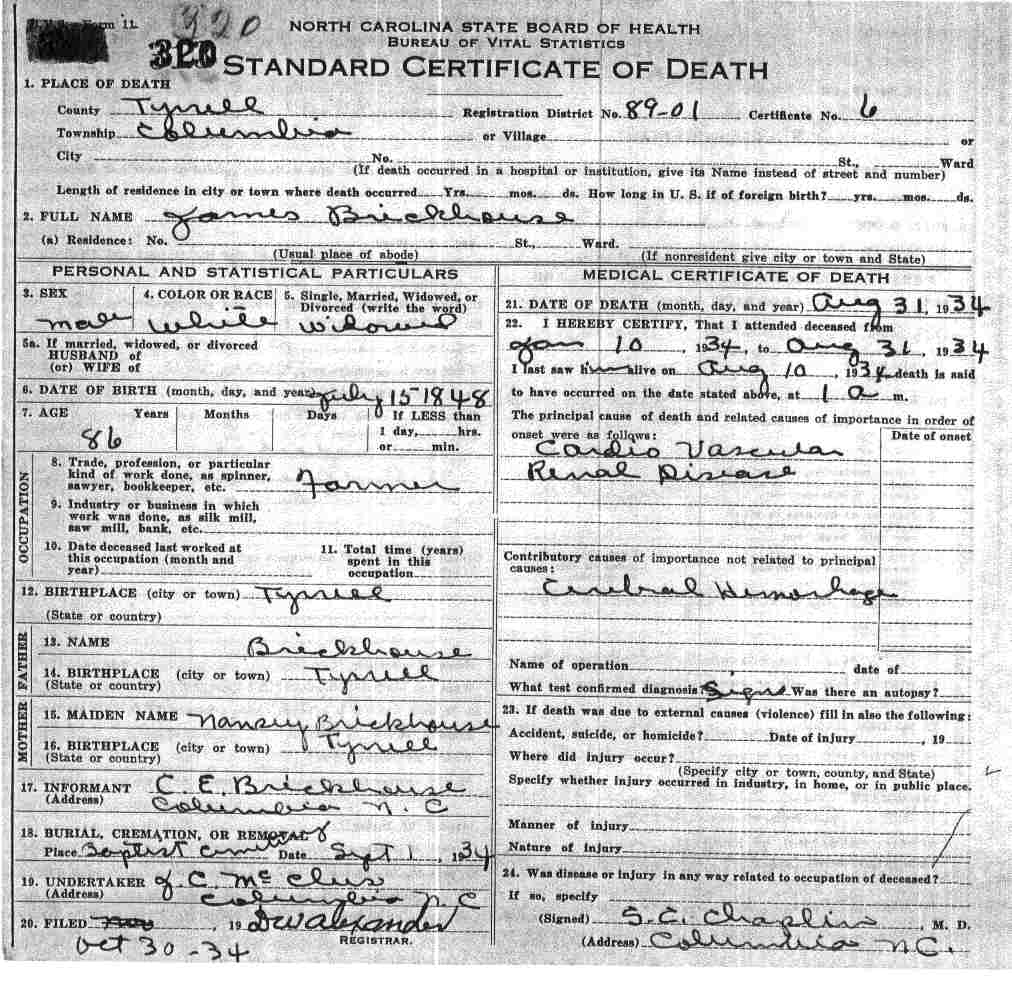 Form 11
320
320
NORTH CAROLINA STATE BOARD OF HEALTH
BUREAU OF VITAL STATISTICS
STANDARD CERTIFICATE OF DEATH
1. PLACE OF DEATH
County Tyrrell Registration District No. 89-01 Certificate No. 6
Township Columbia or Village or
City No. St., Ward
(If death occurred in a hospital or institution, give its Name instead of street and number)
Length of residence in city or town where death occurred Yrs. mos. ds. How long in U. S. if of foreign birth? yrs. mos. ds.
2. FULL NAME James Brickhouse
(a) Residence: No. St., Ward.
(Usual place of abode) (If nonresident give city or town and State)
PERSONAL AND STATISTICAL PARTICULARS
3. SEX 4. COLOR OR RACE 5. Single, Married, Widowed, or
Divorced (write the word)
Male White Widowed
5a. If married, widowed, or divorced
HUSBAND of
(or) WIFE of
6. DATE OF BIRTH (month, day, and year) July 15 1848
7. AGE Years Months Days If LESS than
1 day, hrs.
or min.
86
OCCUPATION
8. Trade, profession, or particular
kind of work done, as spinner,
sawyer, bookkeeper, etc. Farmer
9. Industry or business in which
work was done, as silk mill,
saw mill, bank, etc.
10. Date deceased last worked at
this occupation (month and
year)
11. Total time (years)
spent in this
occupation
12. BIRTHPLACE (city or town) Tyrrell
(State or country)
FATHER
13. NAME Brickhouse
14. BIRTHPLACE (city or town) Tyrrell
(State or country)
MOTHER
15. MAIDEN NAME Brickhouse
16. BIRTHPLACE (city or town) Tyrrell
(State or country)
17. INFORMANT C. E. Brickhouse
(Address) Columbia N. C
18. BURIAL, CREMATION, OR REMOVAL
Place Baptist Date Sept 1, 1934
19. UNDERTAKER J. C. Mc
(Address) Columbia N. C
20. FILED 19 DW Alexander
REGISTRAR.
Oct 30 - 34
MEDICAL CERTIFICATE OF DEATH
21. DATE OF DEATH (month, day, and year) Aug 31, 1934
22. I HEREBY CERTIFY, That I attended deceased from
Jan 10, 1934, to Aug 31, 1934
I last saw him alive on Aug 10, 1934 death is said
to have occurred on the date stated above, at 1 a m.
The principal cause of death and related causes of importance in order of
onset were as follows: Date of onset
Cardio Vascular
Renal Disease
Contributory causes of importance not related to principal
causes:
Cerebral Hemorhage
Name of operation date of
What test confirmed diagnosis? Signs Was there an autopsy?
23. If death was due to external causes (violence) fill in also the following:
Accident, suicide, or homicide? Date of injury , 19
Where did injury occur?
(Specify city or town, county, and State)
Specify whether injury occurred in industry, in home, or in public place.
Manner of injury
Nature of injury
24. Was disease or injury in any way related to occupation of deceased?
If so, specify
(Signed) S. C. Chaplin, M. D.
(Address) Columbia N.C.